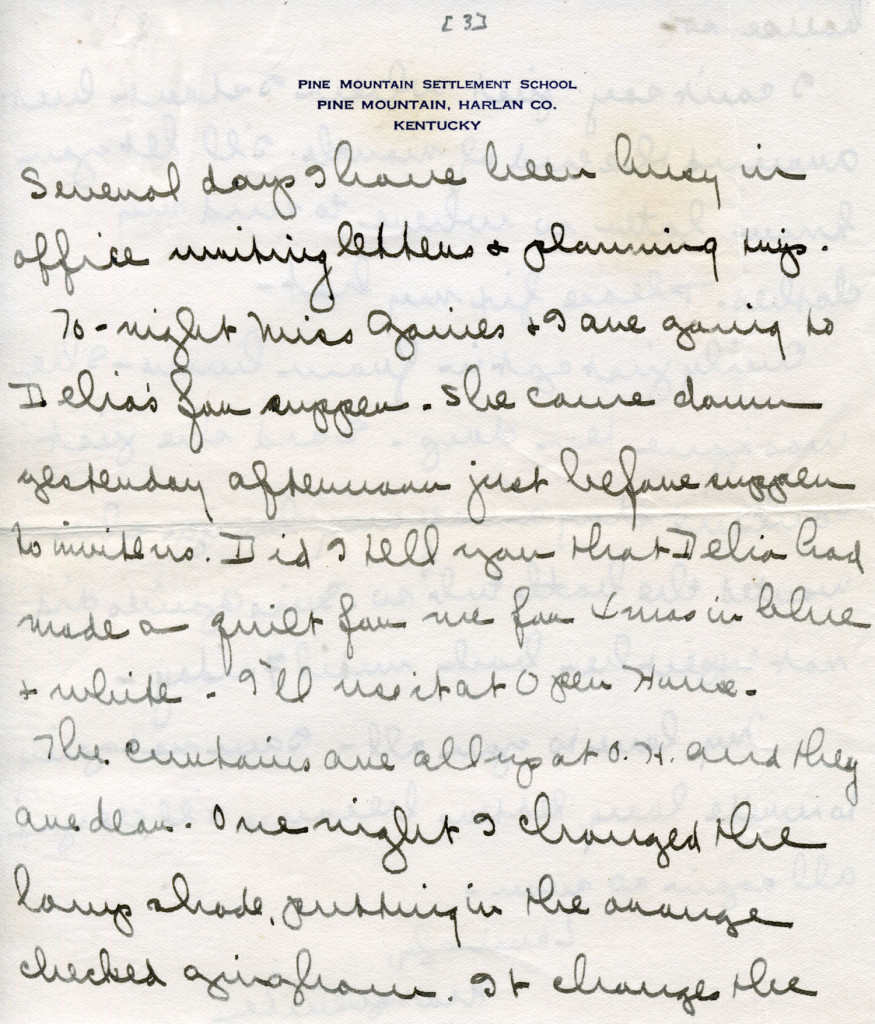 [3]
PINE MOUNTAIN SETTLEMENT SCHOOL
PINE MOUNTAIN, HARLAN CO.
KENTUCKY
Several days I have been busy in
office writing letters & planning trips.
To-night Miss Gaines & I are going to
Delia's for supper. She came down
yesterday afternoon just before supper
to invite us. Did I tell you that Delia had
made a quilt for me for Xmas in blue
& white - I'll use it at Open House.
The curtains are all up at O.H. and they
are dear. One night I changed the
lamp shade, putting in the orange
checked gingham. It changes the